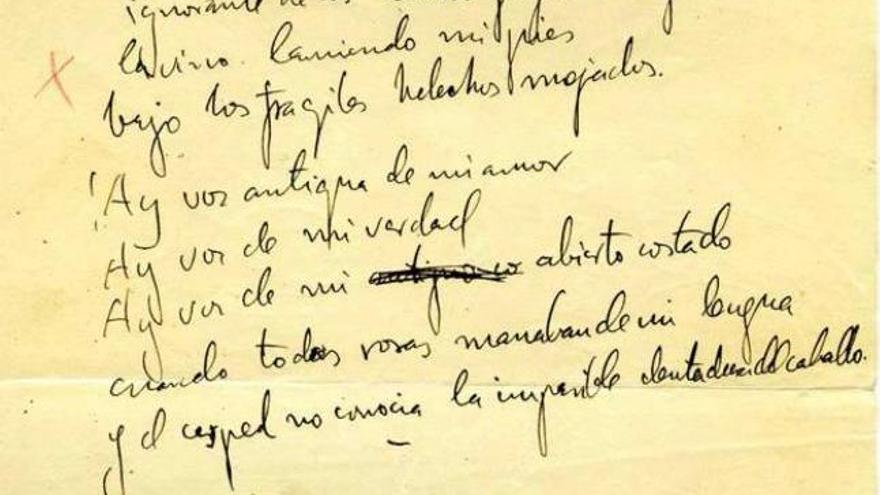 ignorante de los
la vino lamiendo mis pies
bajo los fragiles helechos mojados.
¡Ay voz antigua de mi amor
Ay voz de mi verdad
Ay voz de mi abierto costado
cuando todas rosas manaban de mi lengua
y el cesped no conocia la impasible dentadura del caballo.